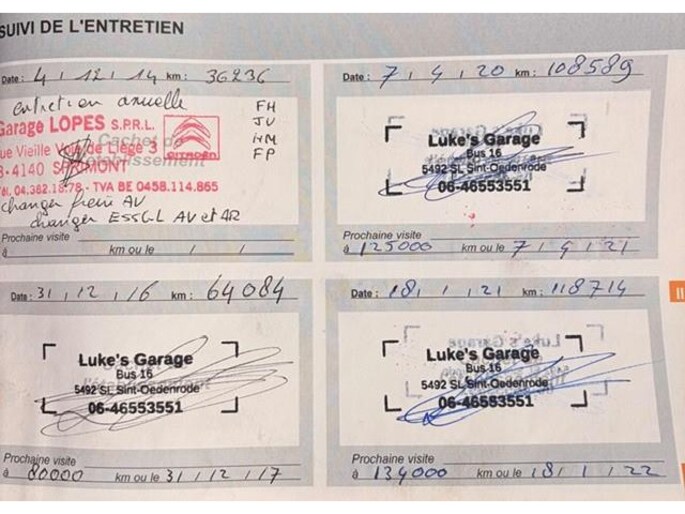 SUIVI DE L'ENTRETIEN
Date: 4 / 12 / 14 km: 36236
entretien annuelle
FH
JV
HM
FP
Garage LOPES S.P.R.L.
Cachet de l'établissement
rue Vieille Voie de Liège 3
CITROËN
B-4140 SPRIMONT
Tél. 04.382.18.78 - TVA BE 0458.114.865
changer frein AV
changer ESSGL AV et AR
Prochaine visite
à km ou le / /
Date: 7 / 4 / 20 km: 108589
Luke's Garage
Bus 16
5492 SL Sint-Oedenrode
06-46553551
Prochaine visite
à 125000 km ou le 7 / 4 / 21
Date: 31 / 12 / 16 km: 64084
Luke's Garage
Bus 16
l'établissement
5492 SL Sint-Oedenrode
06-46553551
Prochaine visite
à 80000 km ou le 31 / 12 / 17
Date: 18 / 1 / 21 km: 118714
Luke's Garage
Bus 16
5492 SL Sint-Oedenrode
06-46553551
Prochaine visite
à 134000 km ou le 18 / 1 / 22
II